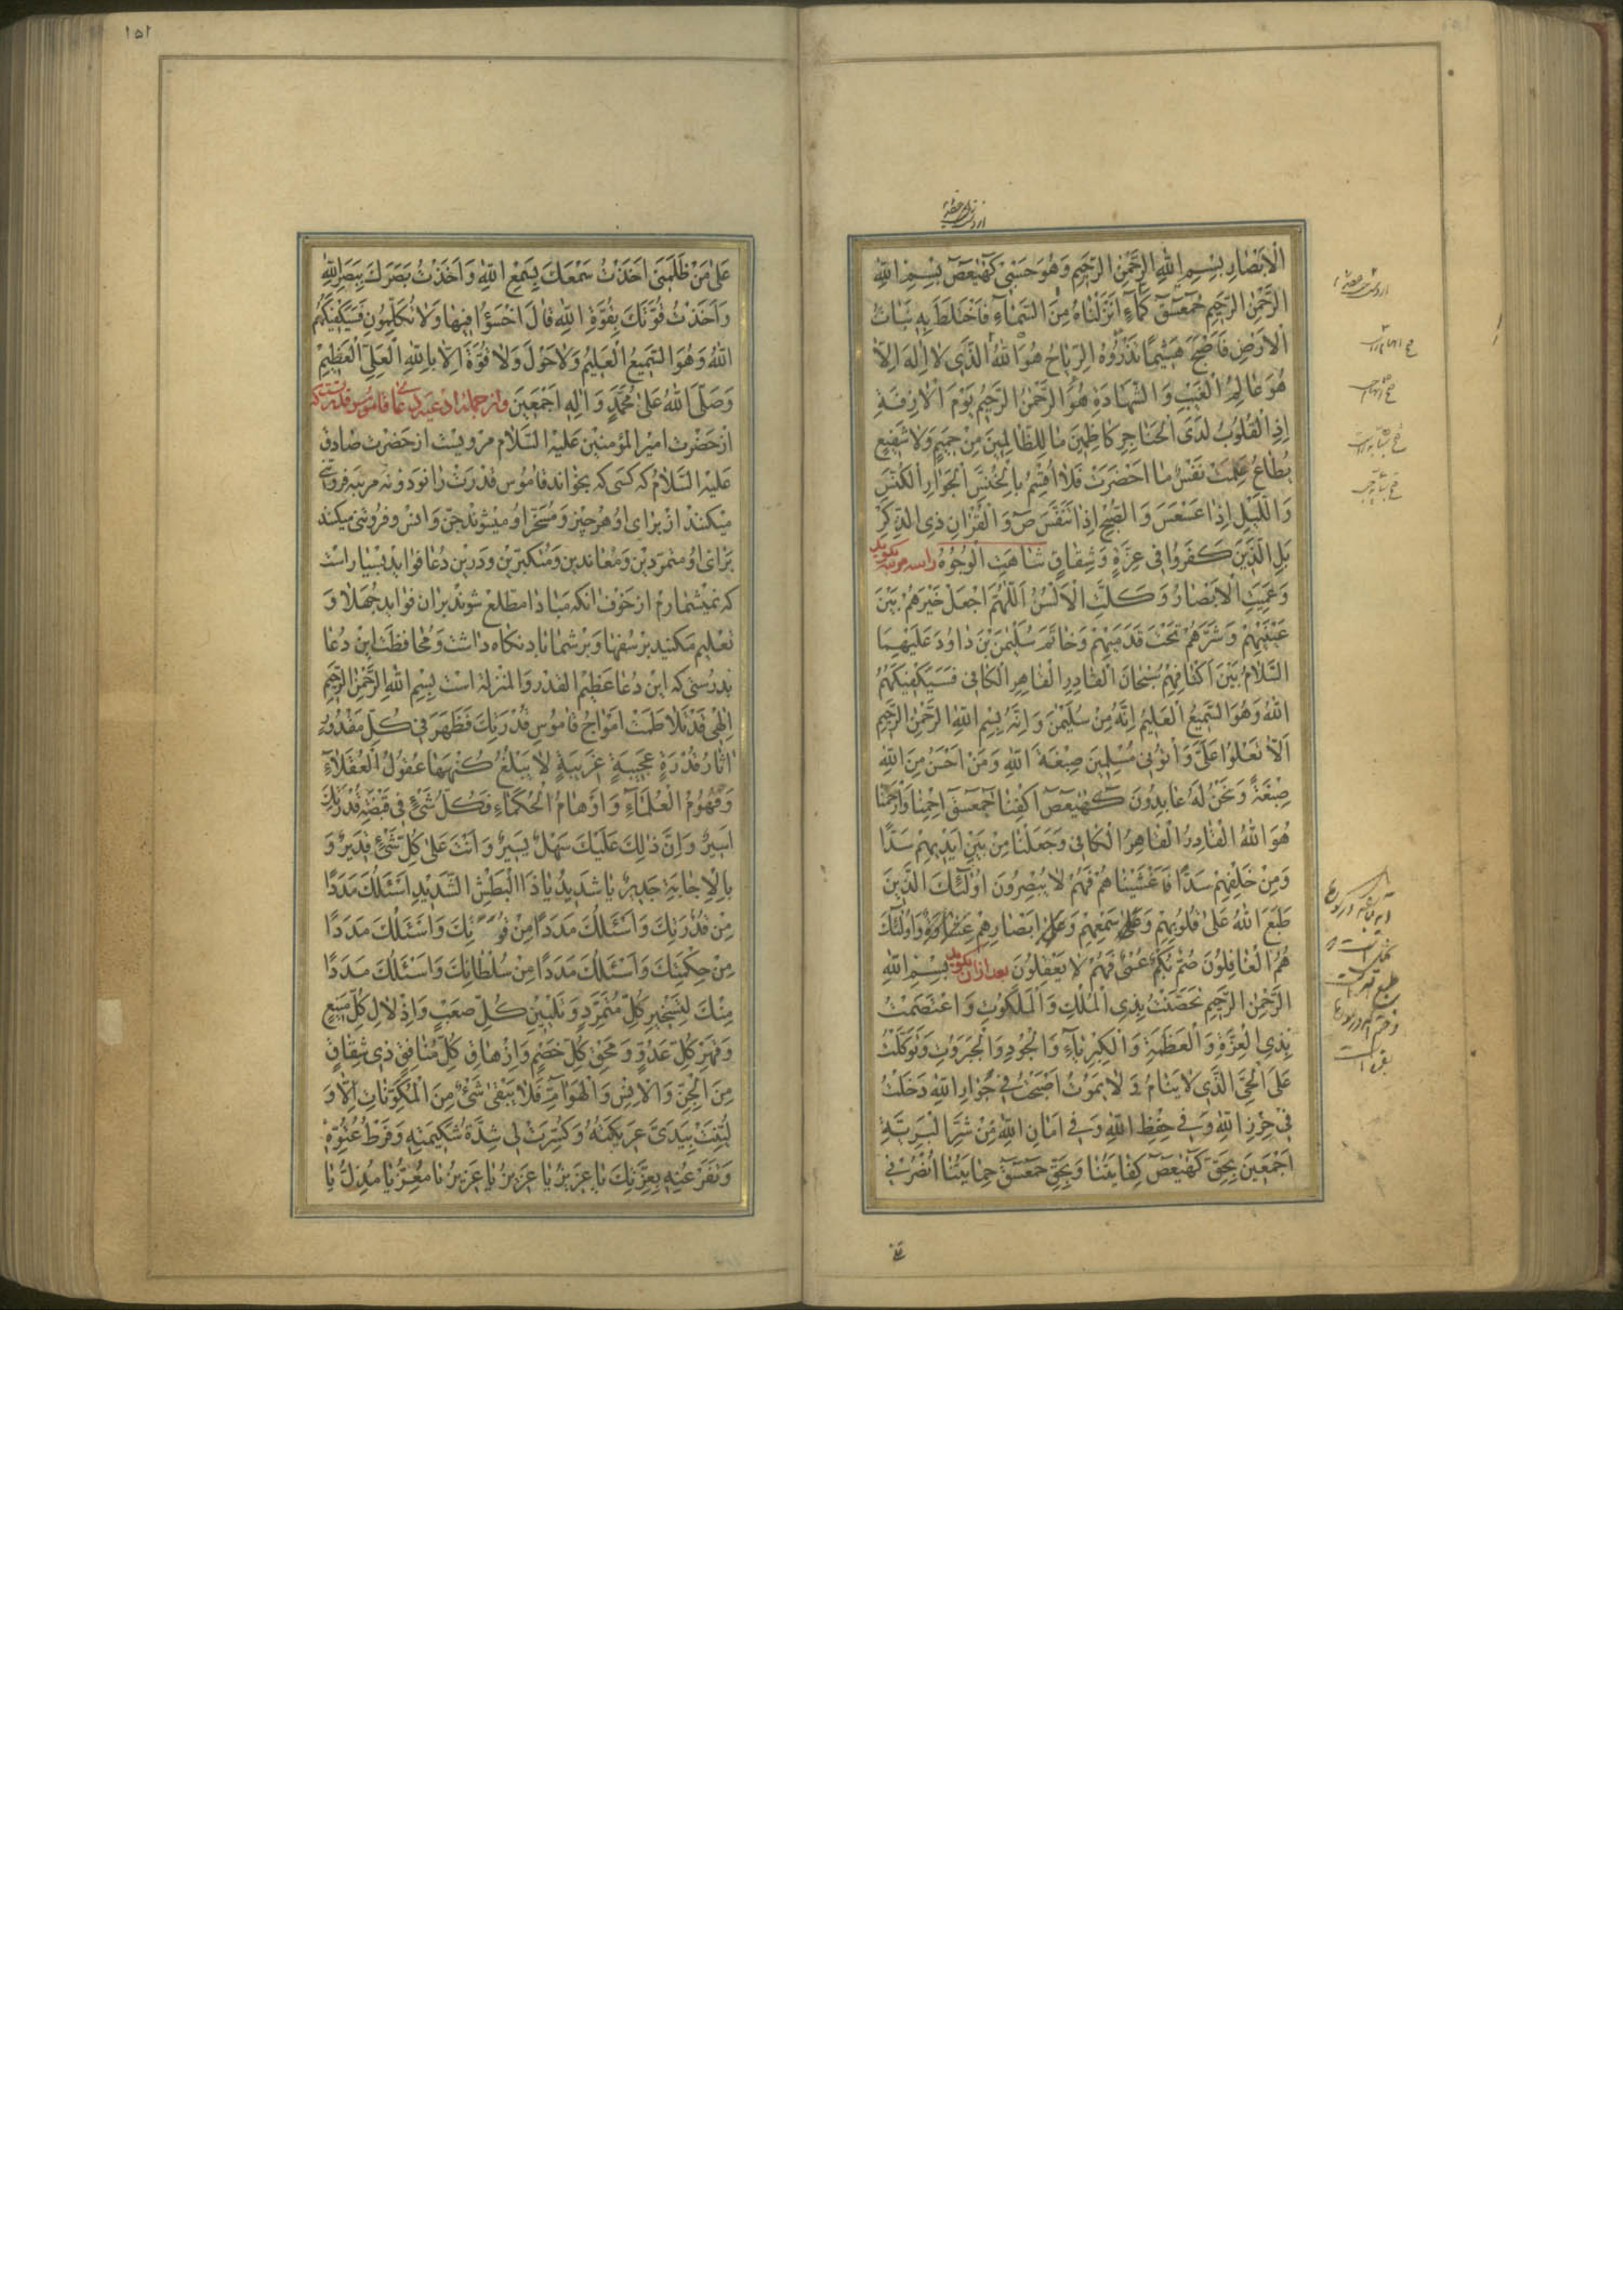 الْاَبْصٰارِ بِسْمِ اللّٰهِ الرَّحْمٰنِ الرَّحِيمِ وَهُوَ حَسْبِى كٓهٰيٰعٓصٓ بِسْمِ اللّٰهِ
الرَّحْمٰنِ الرَّحِيمِ حٓمٓعٓسٓقٓ كَمٰآءٍ اَنْزَلْنٰاهُ مِنَ السَّمٰآءِ فَاخْتَلَطَ بِهِ نَبٰاتُ
الْاَرْضِ فَاَصْبَحَ هَشِيمًا تَذْرُوُهُ الرِّيٰاحُ هُوَ اللّٰهُ الَّذِى لٰا اِلٰهَ اِلّٰا
هُوَ عٰالِمُ الْغَيْبِ وَ الشَّهٰادَةِ هُوَ الرَّحْمٰنُ الرَّحِيمُ يَوْمَ الْاٰزِفَةِ
اِذِ الْقُلُوبُ لَدَى الْحَنٰاجِرِ كٰاظِمِينَ مٰا لِلظّٰالِمِينَ مِنْ حَمِيمٍ وَلٰا شَفِيعٍ
يُطٰاعُ عَلِمَتْ نَفْسٌ مٰا اَحْضَرَتْ فَلٰا اُقْسِمُ بِالْخُنَّسِ الْجَوٰارِ الْكُنَّسِ
وَ اللَّيْلِ اِذٰا عَسْعَسَ وَ الصُّبْحِ اِذٰا تَنَفَّسَ صٓ وَ الْقُرْاٰنِ ذِى الذِّكْرِ
بَلِ الَّذِينَ كَفَرُوا فِى عِزَّةٍ وَ شِقٰاقٍ شٰاهَتِ الْوُجُوهُ را سه مرتبه بگويد
وَ عَمِيَتِ الْاَبْصٰارُ وَ كَلَّتِ الْاَلْسُنُ اَللّٰهُمَّ اجْعَلْ خَيْرَهُمْ بَيْنَ
عَيْنَيْهِمْ وَ شَرَّهُمْ تَحْتَ قَدَمَيْهِمْ وَ خٰاتَمَ سُلَيْمٰنَ بْنَ دٰاوُدَ عَلَيْهِمَا
السَّلٰامُ بَيْنَ اَكْتٰافِهِمْ سُبْحٰانَ الْقٰادِرِ الْقٰاهِرِ الْكٰافِى فَسَيَكْفِيكَهُمُ
اللّٰهُ وَ هُوَ السَّمِيعُ الْعَلِيمُ اِنَّهُ مِنْ سُلَيْمٰنَ وَ اِنَّهُ بِسْمِ اللّٰهِ الرَّحْمٰنِ الرَّحِيمِ
اَلّٰا تَعْلُوا عَلَىَّ وَ أْتُونِى مُسْلِمِينَ صِبْغَةَ اللّٰهِ وَ مَنْ اَحْسَنُ مِنَ اللّٰهِ
صِبْغَةً وَ نَحْنُ لَهُ عٰابِدُونَ كٓهٰيٰعٓصٓ اكْفِنٰا حٓمٓعٓسٓقٓ احْمِنٰا وَارْحَمْنٰا
هُوَ اللّٰهُ الْقٰادِرُ الْقٰاهِرُ الْكٰافِى وَجَعَلْنٰا مِنْ بَيْنِ اَيْدِيهِمْ سَدًّا
وَ مِنْ خَلْفِهِمْ سَدًّا فَاَغْشَيْنٰاهُمْ فَهُمْ لٰا يُبْصِرُونَ اُولٰئِكَ الَّذِينَ
طَبَعَ اللّٰهُ عَلٰى قُلُوبِهِمْ وَ عَلٰى سَمْعِهِمْ وَ عَلٰى اَبْصٰارِهِمْ غِشٰاوَةٌ وَ اُولٰئِكَ
هُمُ الْغٰافِلُونَ صُمٌّ بُكْمٌ عُمْىٌ فَهُمْ لٰا يَعْقِلُونَ بعد از ان بگويد بِسْمِ اللّٰهِ
الرَّحْمٰنِ الرَّحِيمِ تَحَصَّنْتُ بِذِى الْمُلْكِ وَ الْمَلَكُوتِ وَ اعْتَصَمْتُ
بِذِى الْعِزَّةِ وَ الْعَظَمَةِ وَ الْكِبْرِيٰآءِ وَ الْجُودِ وَ الْجَبَرُوتِ وَ تَوَكَّلْتُ
عَلَى الْحَىِّ الَّذِى لٰا يَنٰامُ وَ لٰا يَمُوتُ اَصْبَحْتُ فِى جِوٰارِ اللّٰهِ دَخَلْتُ
فِى حِرْزِ اللّٰهِ وَ فِى حِفْظِ اللّٰهِ وَ فِى اَمٰانِ اللّٰهِ مِنْ شَرِّ الْبَرِيَّةِ
اَجْمَعِينَ بِحَقِّ كٓهٰيٰعٓصٓ كِفٰايَتُنٰا وَ بِحَقِّ حٓمٓعٓسٓقٓ حِمٰايَتُنٰا اُنْصُرْنِى
١٥١
عَلٰى مَنْ ظَلَمَنِى اَخَذْتُ سَمْعَكَ بِسَمْعِ اللّٰهِ وَ اَخَذْتُ بَصَرَكَ بِبَصَرِ اللّٰهِ
وَ اَخَذْتُ قُوَّتَكَ بِقُوَّةِ اللّٰهِ قٰالَ اخْسَؤُا فِيهٰا وَ لٰا تُكَلِّمُونِ فَسَيَكْفِيكَهُمُ
اللّٰهُ وَ هُوَ السَّمِيعُ الْعَلِيمُ وَ لٰا حَوْلَ وَ لٰا قُوَّةَ اِلّٰا بِاللّٰهِ الْعَلِىِّ الْعَظِيمِ
وَ صَلَّى اللّٰهُ عَلٰى مُحَمَّدٍ وَ اٰلِهِ اَجْمَعِينَ و از جمله ادعيه دعاى قاموس قدرتست كه
از حَضْرَت اميرالمؤمنين عليه السّلام مرويست از حضرت صادق
عليه السّلام كه كسى كه بخواند قاموس قدرت را نود و نه مرتبه فروتنى
ميكنند از براى او هر چيز و مسخّر او ميشوند جنّ و انس و فروتنى ميكند
براى او متمرّدين و معاندين و متكبّرين و درين دعا فوايد بسيار است
كه نميشمارم از خوف انكه مبادا مطّلع شوند بران فوايد جهلا و
تعليم مكنيد بر سفها و بر شما باد نگاه داشت و محافظت اين دعا
بدرستى كه اين دعا عظيم القدر و المنزلة است بِسْمِ اللّٰهِ الرَّحْمٰنِ الرَّحِيمِ
اِلٰهِى قَدْ تَلٰاطَمَتْ اَمْوٰاجُ قٰامُوسِ قُدْرَتِكَ فَظَهَرَ فِى كُلِّ مَقْدُورٍ
اٰثٰارُ قُدْرَةٍ عَجِيبَةٍ غَرِيبَةٍ لٰا يَبْلُغُ كُنْهَهٰا عُقُولُ الْعُقَلٰآءِ
وَ فُهُومُ الْعُلَمٰآءِ وَ اَوْهٰامُ الْحُكَمٰاءِ فَكُلُّ شَىْءٍ فِى قَبْضَةِ قُدْرَتِكَ
اَسِيرٌ وَ اِنَّ ذٰلِكَ عَلَيْكَ سَهْلٌ يَسِيرٌ وَ اَنْتَ عَلٰى كُلِّ شَىْءٍ قَدِيرٌ وَ
بِالْاِجٰابَةِ جَدِيرٌ يٰا شَدِيدُ يٰا ذَا الْبَطْشِ الشَّدِيدِ اَسْئَلُكَ مَدَدًا
مِنْ قُدْرَتِكَ وَ اَسْئَلُكَ مَدَدًا مِنْ قُوَّتِكَ وَ اَسْئَلُكَ مَدَدًا
مِنْ حِكْمَتِكَ وَ اَسْئَلُكَ مَدَدًا مِنْ سُلْطٰانِكَ وَ اَسْئَلُكَ مَدَدًا
مِنْكَ لِتَسْخِيرِ كُلِّ مُتَمَرِّدٍ وَ تَلْيِينِ كُلِّ صَعْبٍ وَ اِذْلٰالِ كُلِّ مَنِيعٍ
وَ قَهْرِ كُلِّ عَدُوٍّ وَ مَحْقِ كُلِّ خَصْمٍ وَ اِزْهٰاقِ كُلِّ مُنٰافِقٍ ذِى شِقٰاقٍ
مِنَ الْجِنِّ وَ الْاِنْسِ وَ الْهَوٰآمِّ فَلٰا يَبْقٰى شَىْءٌ مِنَ الْمُكَوَّنٰاتِ اِلّٰا وَ
لُيِّنَتْ بِيَدَىَّ عَرِيكَتُهُ وَ كُسِرَتْ لِى شِدَّةُ شَكِيمَتِهِ وَ فَرْطُ عُتُوِّهِ
وَ تَفَرْعُنِهِ بِعِزَّتِكَ يٰا عَزِيزُ يٰا عَزِيزُ يٰا عَزِيزُ يٰا مُعِزُّ يٰا مُذِلُّ يٰا